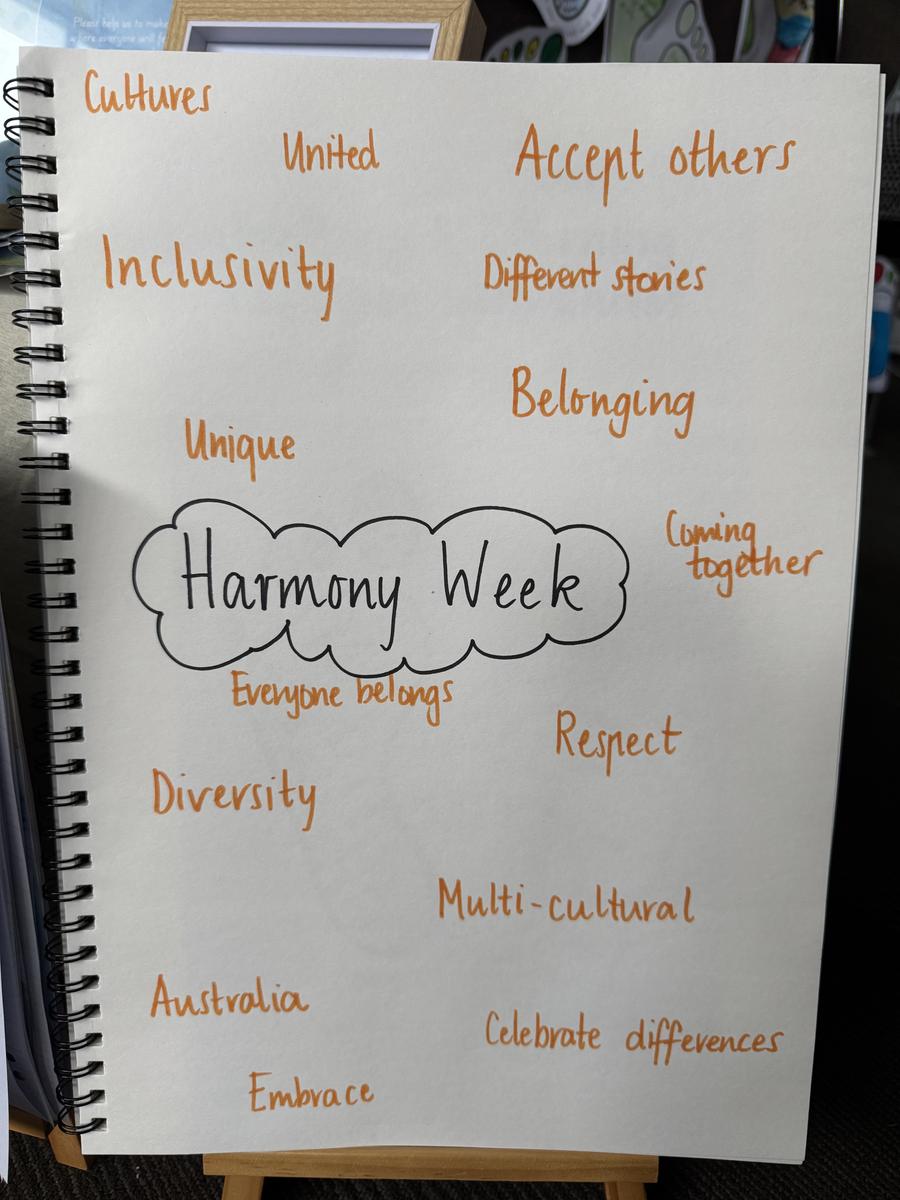 Please help us to make
where everyone will fe
Cultures
United
Accept others
Inclusivity
Different stories
Belonging
Unique
Coming
together
Harmony Week
Everyone belongs
Respect
Diversity
Multi-cultural
Australia
Celebrate differences
Embrace